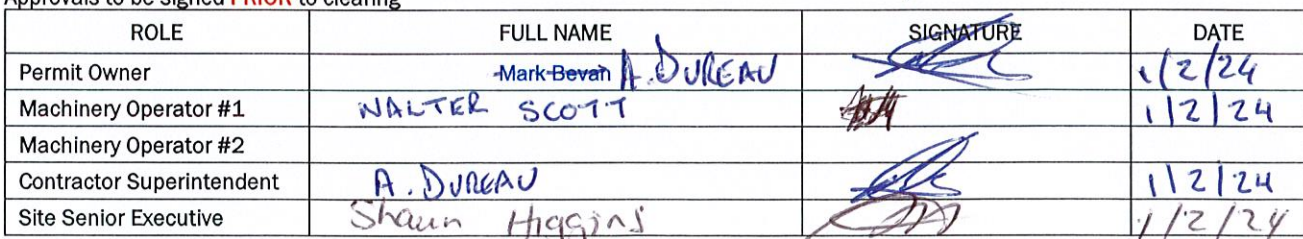 Approvals to be signed PRIOR to clearing
ROLE FULL NAME SIGNATURE DATE
Permit Owner Mark Bevan A. DUREAU 1/2/24
Machinery Operator #1 WALTER SCOTT 1/2/24
Machinery Operator #2
Contractor Superintendent A. DUREAU 1/2/24
Site Senior Executive Shaun Higgins 1/2/24